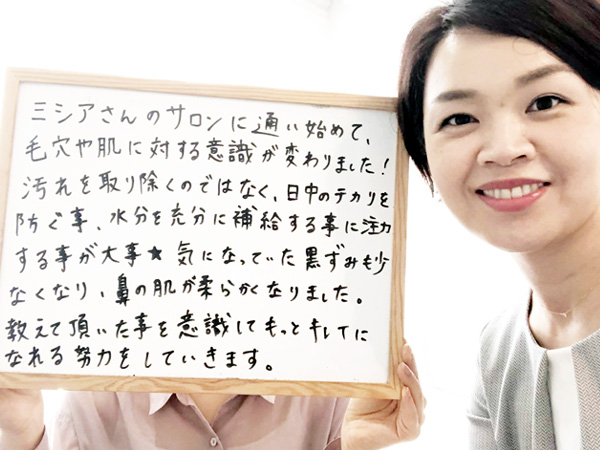 ミシアさんのサロンに通い始めて、
毛穴や肌に対する意識が変わりました!
汚れを取り除くのではなく、日中のテカリを
防ぐ事、水分を充分に補給する事に注力
する事が大事★ 気になっていた黒ずみも少
なくなり、鼻の肌が柔らかくなりました。
教えて頂いた事を意識してもっとキレイに
なれる努力をしていきます。